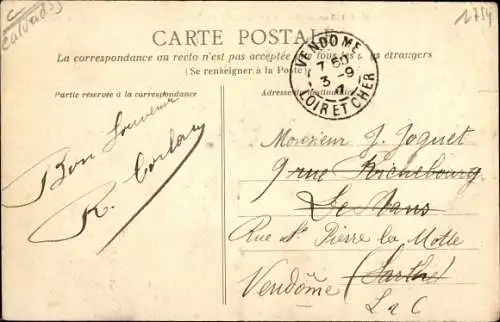 Calvados
1754
CARTE POSTALE
La correspondance au recto n'est pas acceptée par tous les pays étrangers
(Se renseigner à la Poste)
Partie réservée à la correspondance
Adresse du destinataire
VENDOME
7 50
3 - 9
LOIR ET CHER
Bon Souvenir
R.
Monsieur J. Joquet
9 rue Richebourg
Le Mans
Rue St Pierre la Motte
Vendôme (Sarthe)
L & C